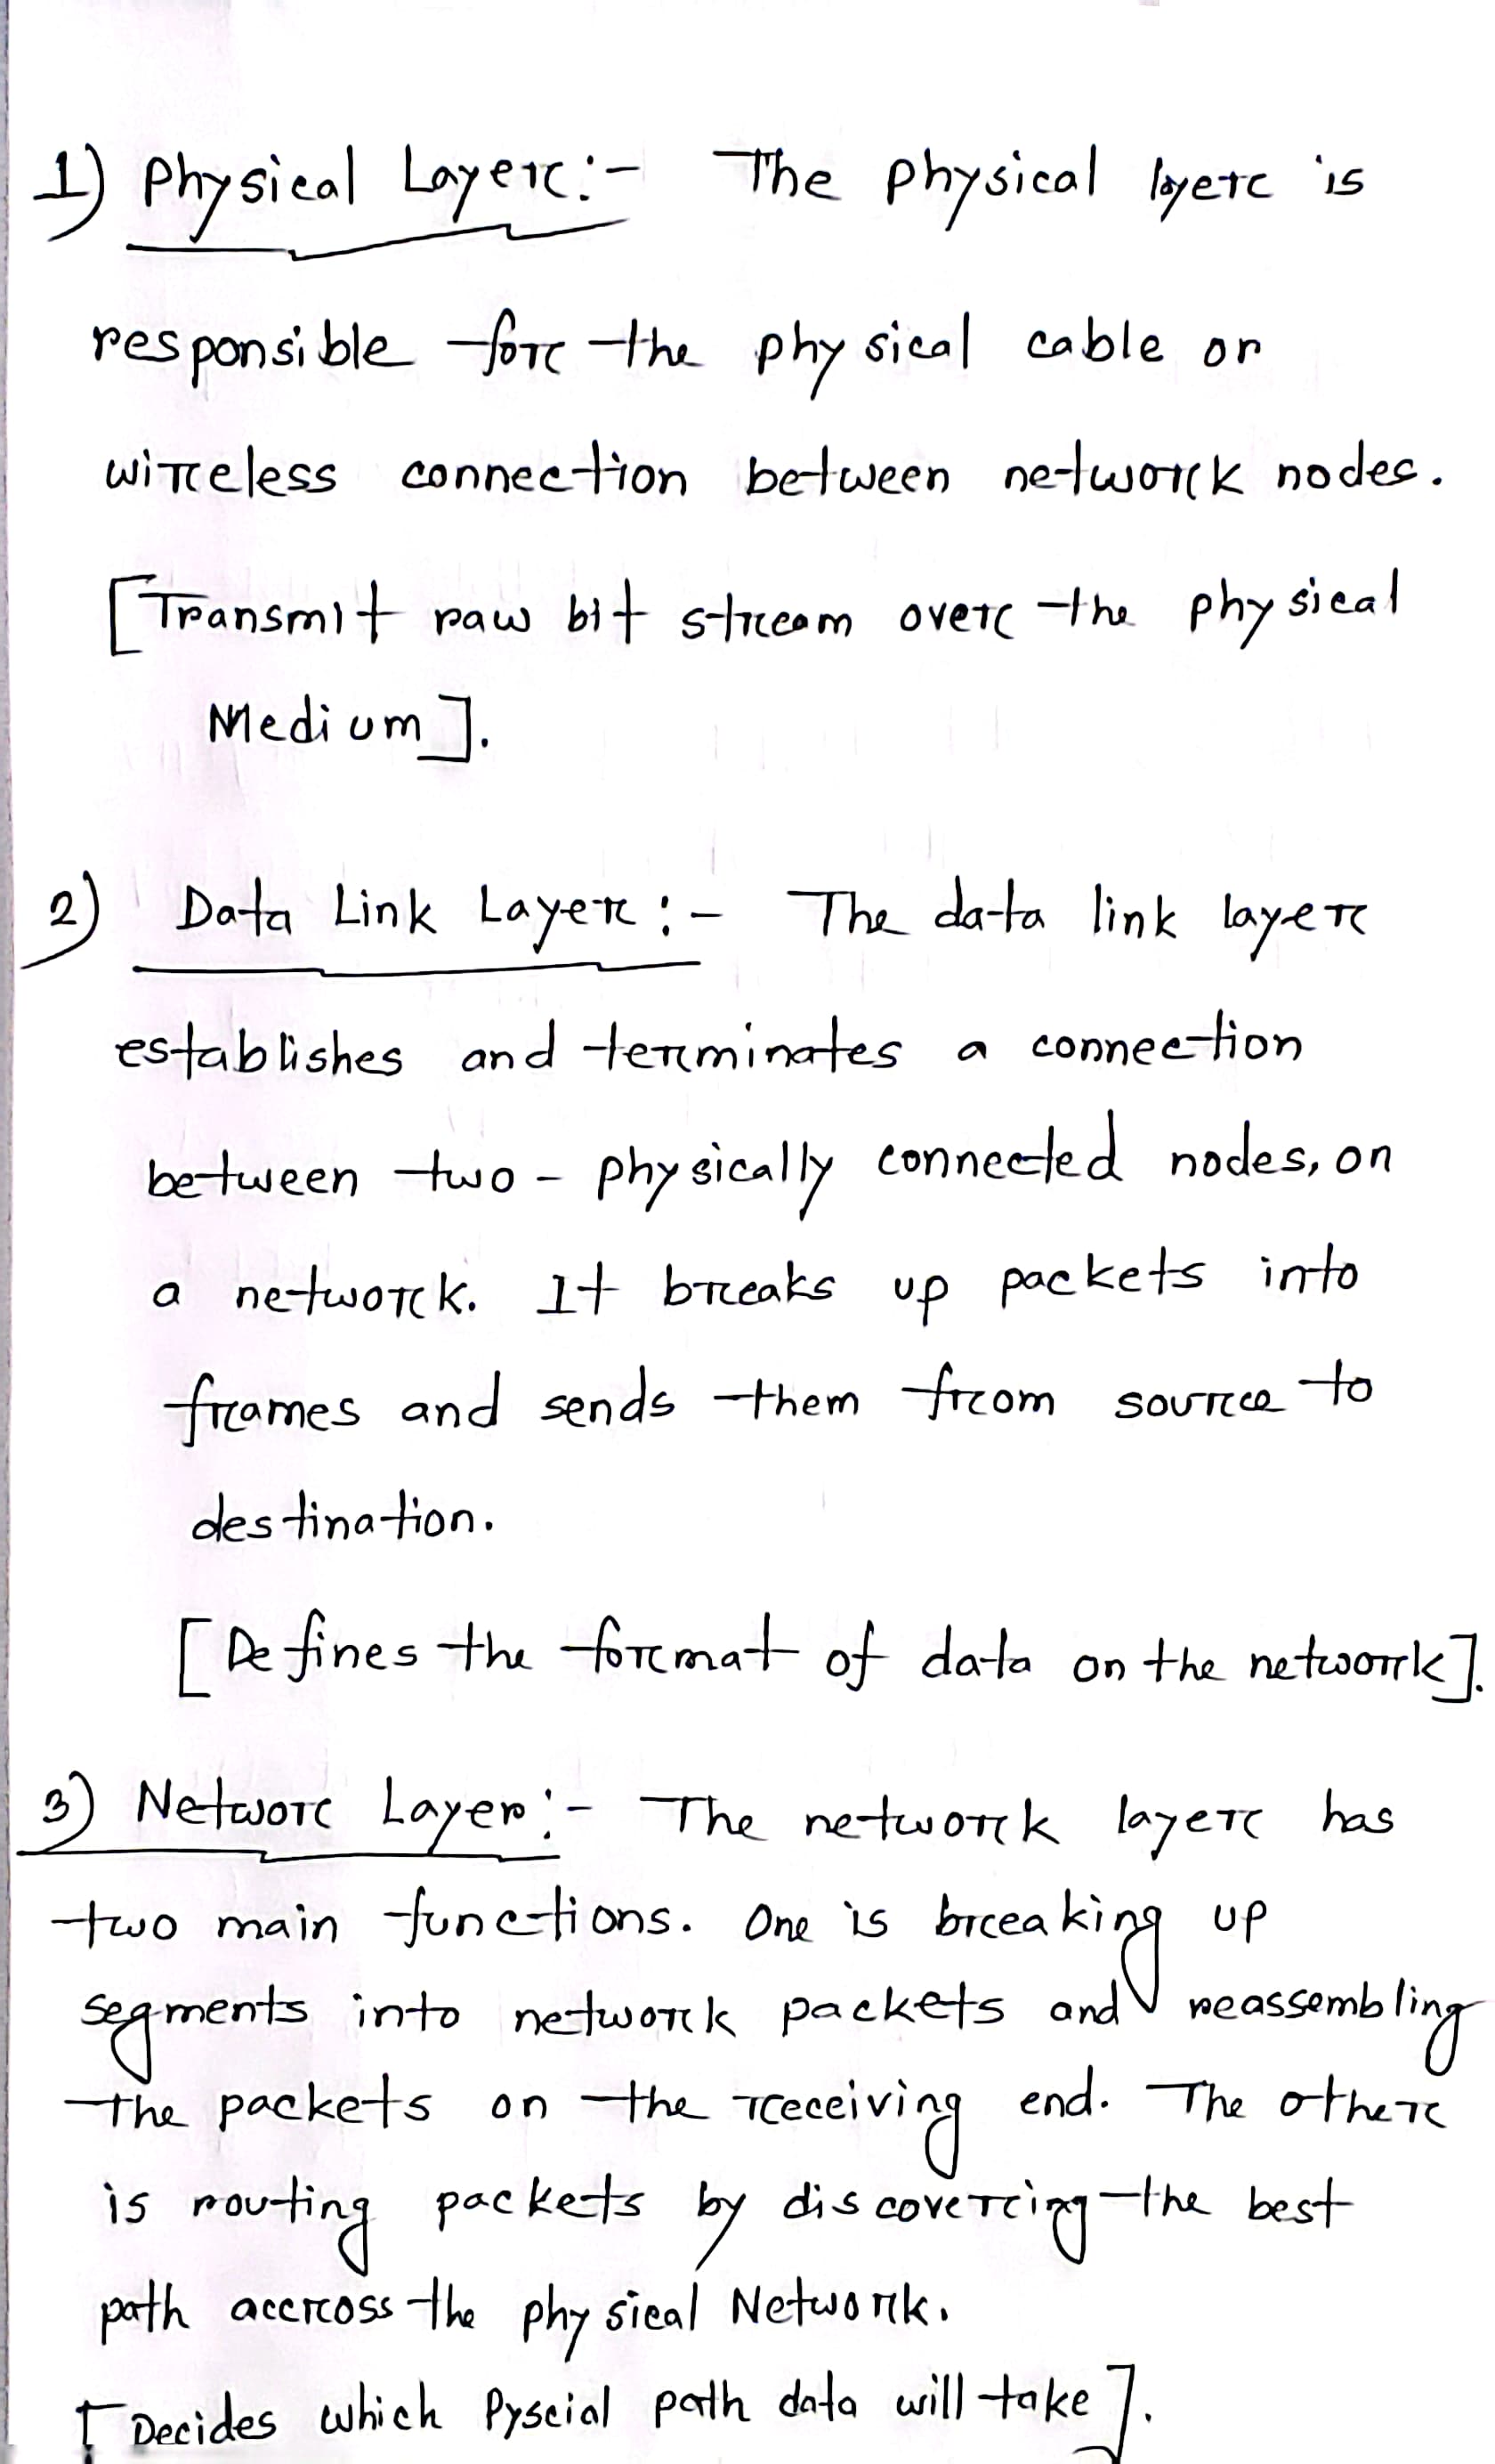 1) Physical Layer:- The physical layer is
responsible for the physical cable or
wireless connection between network nodes.
[Transmit raw bit stream over the physical
Medium].
2) Data Link Layer:- The data link layer
establishes and terminates a connection
between two - physically connected nodes, on
a network. It breaks up packets into
frames and sends them from source to
destination.
[Defines the format of data on the network].
3) Networ Layer:- The network layer has
two main functions. One is breaking up
segments into network packets and reassembling
the packets on the receiving end. The other
is routing packets by discovering the best
path accross the physical Network.
[Decides which Pyscial path data will take].